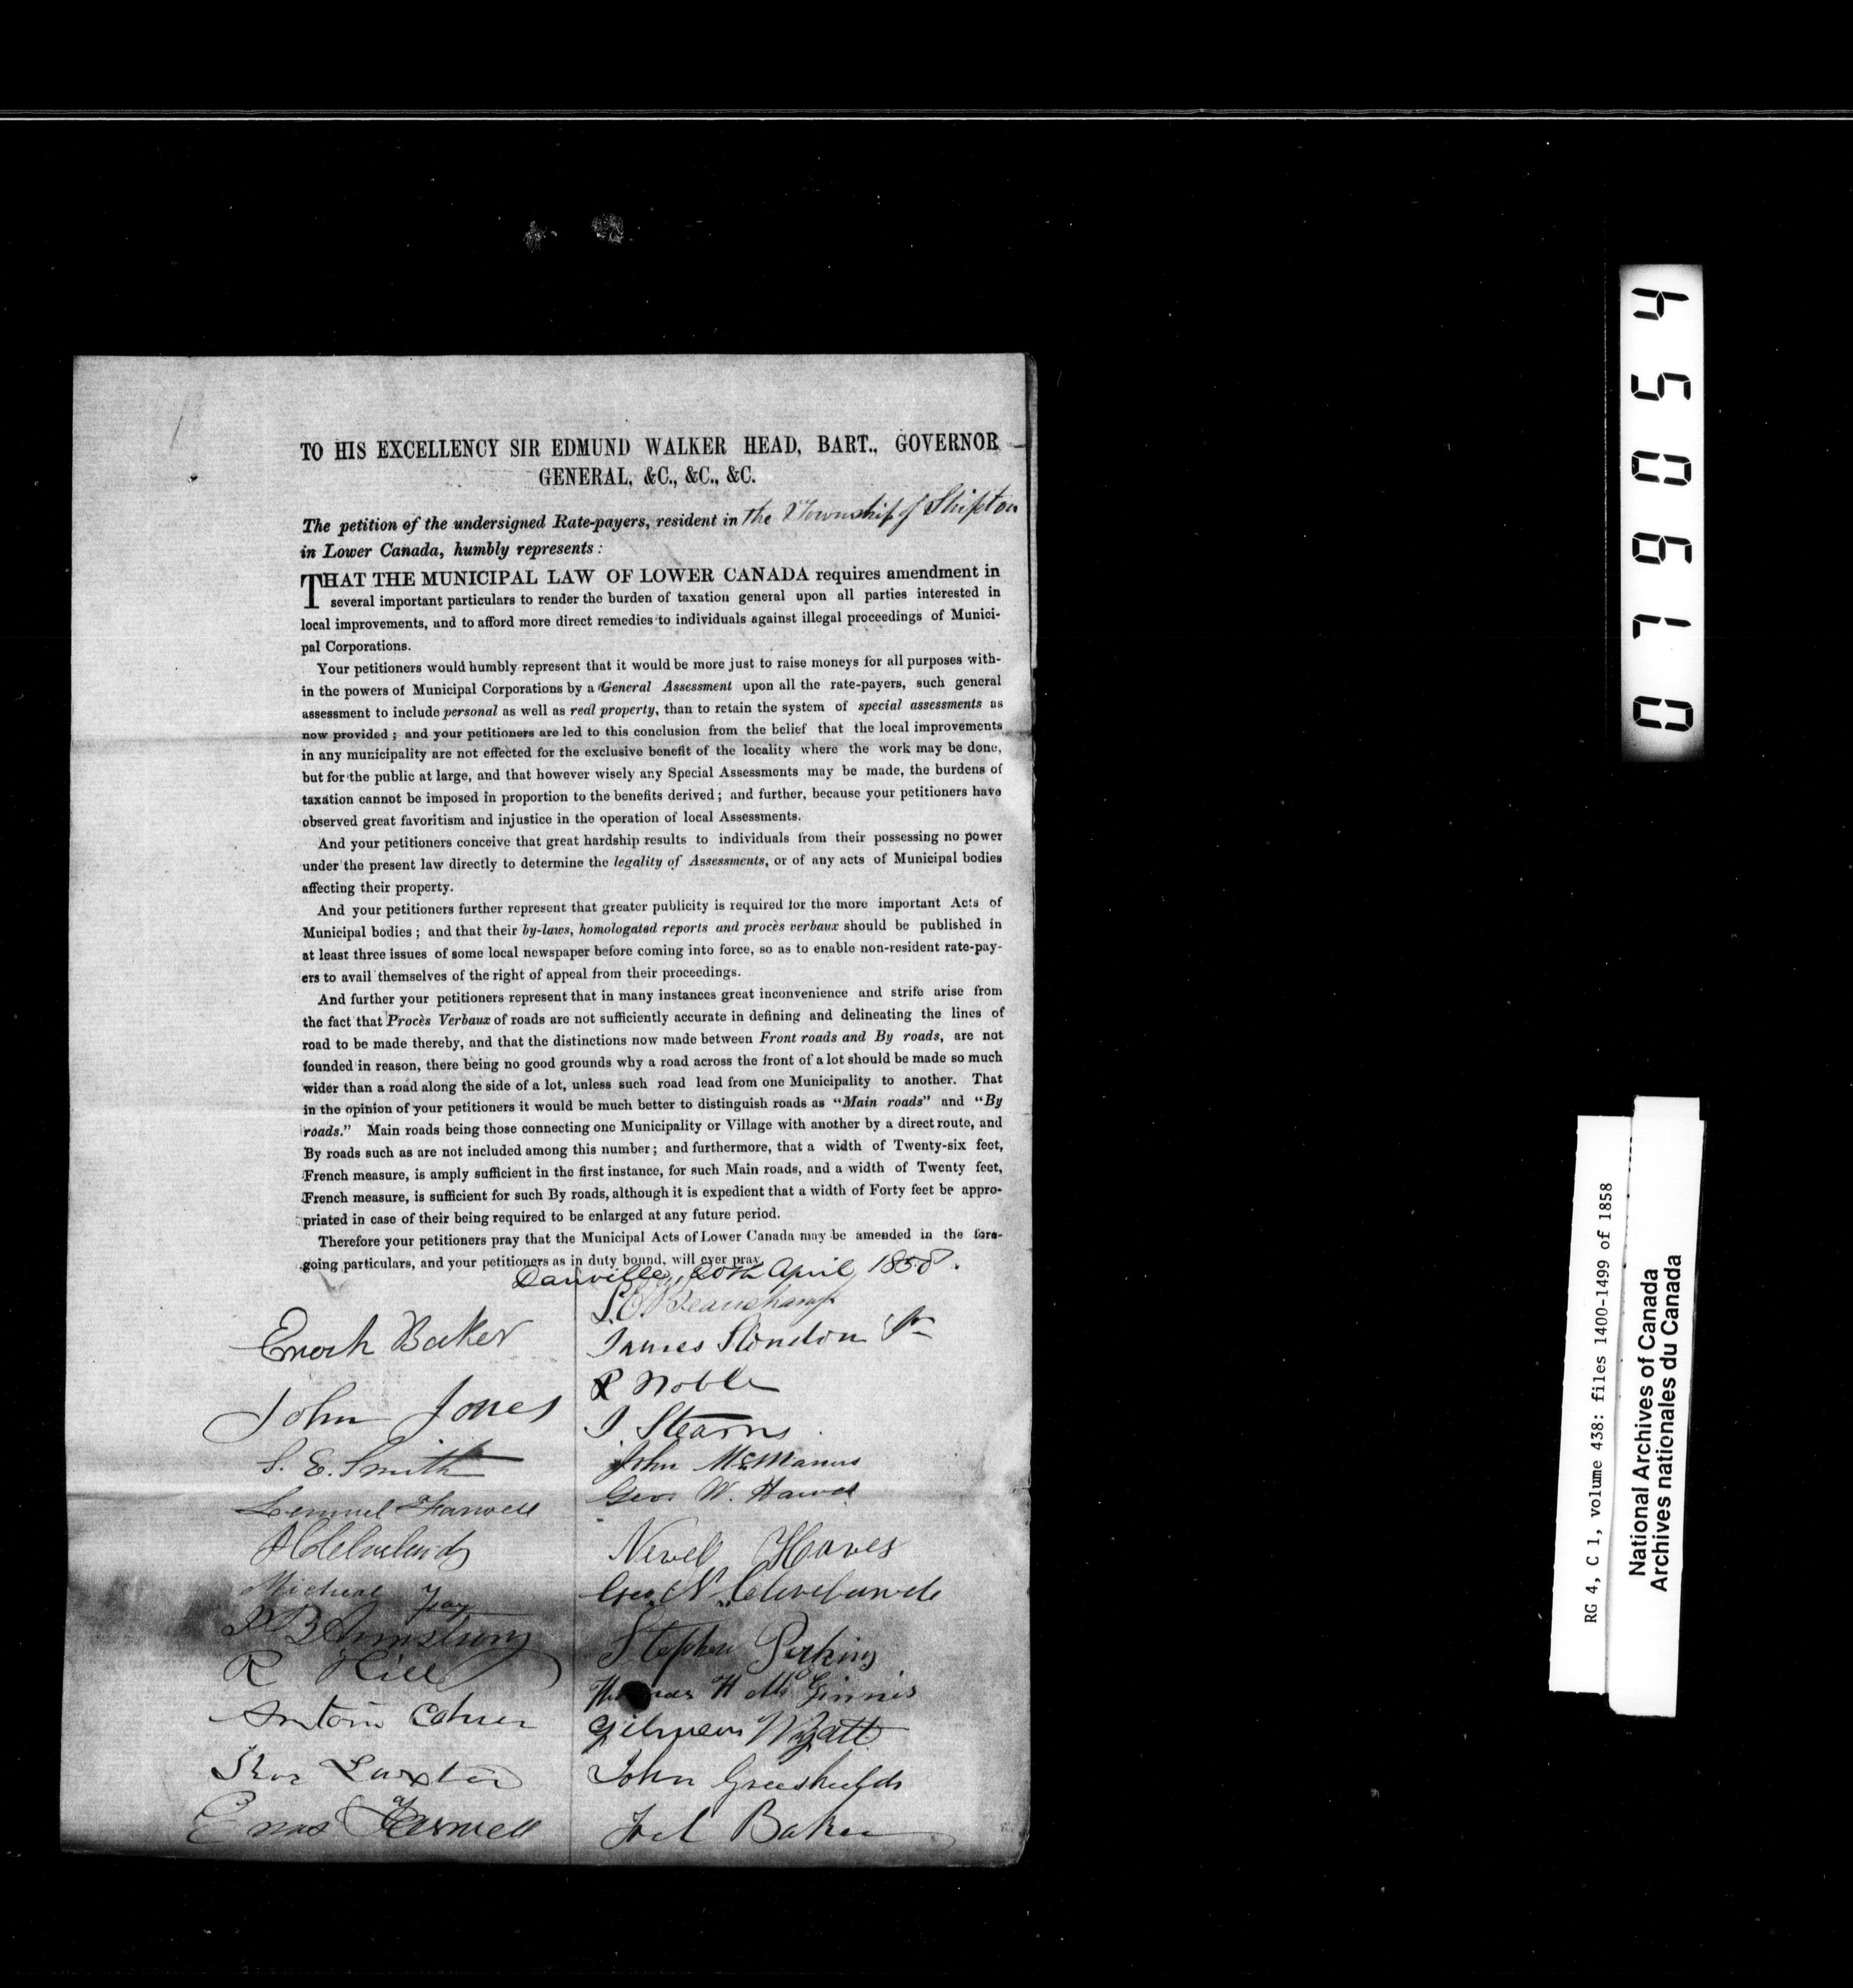 TO HIS EXCELLENCY SIR EDMUND WALKER HEAD, BART., GOVERNOR
GENERAL, &C., &C., &C.
The petition of the undersigned Rate-payers, resident in the Township of Shipton
in Lower Canada, humbly represents:
THAT THE MUNICIPAL LAW OF LOWER CANADA requires amendment in
several important particulars to render the burden of taxation general upon all parties interested in
local improvements, and to afford more direct remedies to individuals against illegal proceedings of Munici-
pal Corporations.
Your petitioners would humbly represent that it would be more just to raise moneys for all purposes with-
in the powers of Municipal Corporations by a General Assessment upon all the rate-payers, such general
assessment to include personal as well as real property, than to retain the system of special assessments as
now provided; and your petitioners are led to this conclusion from the belief that the local improvements
in any municipality are not effected for the exclusive benefit of the locality where the work may be done,
but for the public at large, and that however wisely any Special Assessments may be made, the burdens of
taxation cannot be imposed in proportion to the benefits derived; and further, because your petitioners have
observed great favoritism and injustice in the operation of local Assessments.
And your petitioners conceive that great hardship results to individuals from their possessing no power
under the present law directly to determine the legality of Assessments, or of any acts of Municipal bodies
affecting their property.
And your petitioners further represent that greater publicity is required for the more important Acts of
Municipal bodies; and that their by-laws, homologated reports and procès verbaux should be published in
at least three issues of some local newspaper before coming into force, so as to enable non-resident rate-pay-
ers to avail themselves of the right of appeal from their proceedings.
And further your petitioners represent that in many instances great inconvenience and strife arise from
the fact that Procès Verbaux of roads are not sufficiently accurate in defining and delineating the lines of
road to be made thereby, and that the distinctions now made between Front roads and By roads, are not
founded in reason, there being no good grounds why a road across the front of a lot should be made so much
wider than a road along the side of a lot, unless such road lead from one Municipality to another. That
in the opinion of your petitioners it would be much better to distinguish roads as "Main roads" and "By
roads." Main roads being those connecting one Municipality or Village with another by a direct route, and
By roads such as are not included among this number; and furthermore, that a width of Twenty-six feet,
French measure, is amply sufficient in the first instance, for such Main roads, and a width of Twenty feet,
French measure, is sufficient for such By roads, although it is expedient that a width of Forty feet be appro-
priated in case of their being required to be enlarged at any future period.
Therefore your petitioners pray that the Municipal Acts of Lower Canada may be amended in the fore-
going particulars, and your petitioners as in duty bound, will ever pray.
Danville, 20th April, 1858.
Enoch Baker
John Jones
S. E. Smith
Lemuel Farwell
Micheal
Armstrong
R Hill
Farwell
Beauchamp
James
R Noble
Stearns
John McManus
Geo W. Hawes
Nevel Hawes
Geo. N. Cleveland
Stephen Perkins
Thomas H McGinnis
Gilman Wyatt
John Greenshields
Joel Baker
079054
RG 4, C 1, volume 438: files 1400-1499 of 1858
National Archives of Canada
Archives nationales du Canada